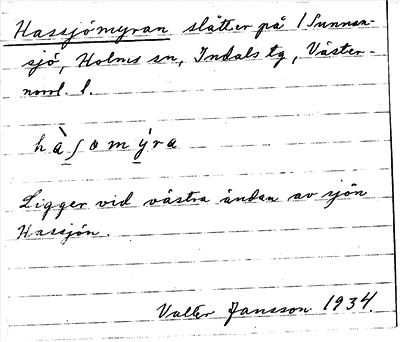 Hassjömyran slåtter på 1 Sunnan-
sjö, Holms sn, Indals tg, Väster-
norrl. l.
hàʃomy̌ra
Ligger vid västra ändan av sjön
Hassjön.
Valter Jansson 1934.